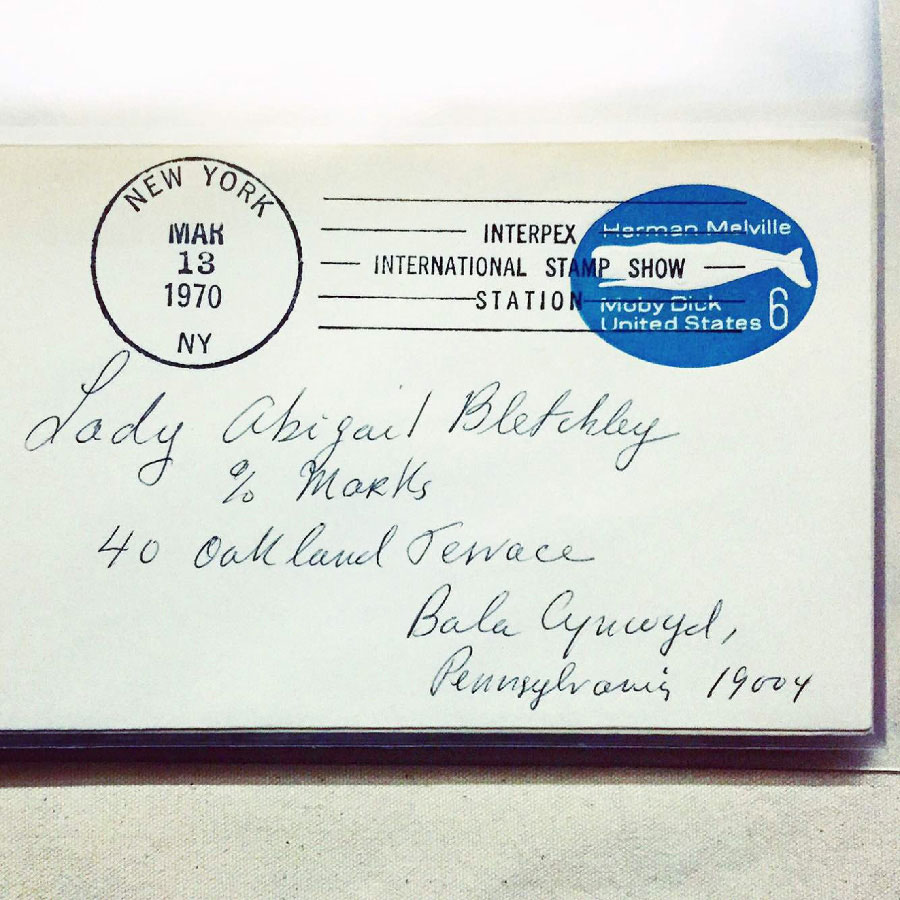 NEW YORK
MAR
13
1970
NY
INTERPEX
INTERNATIONAL STAMP SHOW
STATION
Herman Melville
Moby Dick
United States 6
Lady Abigail Bletchley
% Marks
40 Oakland Terrace
Bala Cynwyd,
Pennsylvania 19004